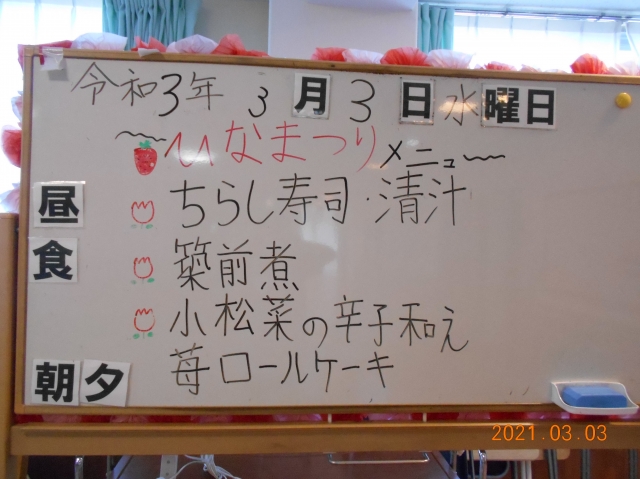 令和3年 3月3日水曜日
ひなまつりメニュー
昼食
ちらし寿司・清汁
築前煮
小松菜の辛子和え
苺ロールケーキ
朝夕
2021.03.03